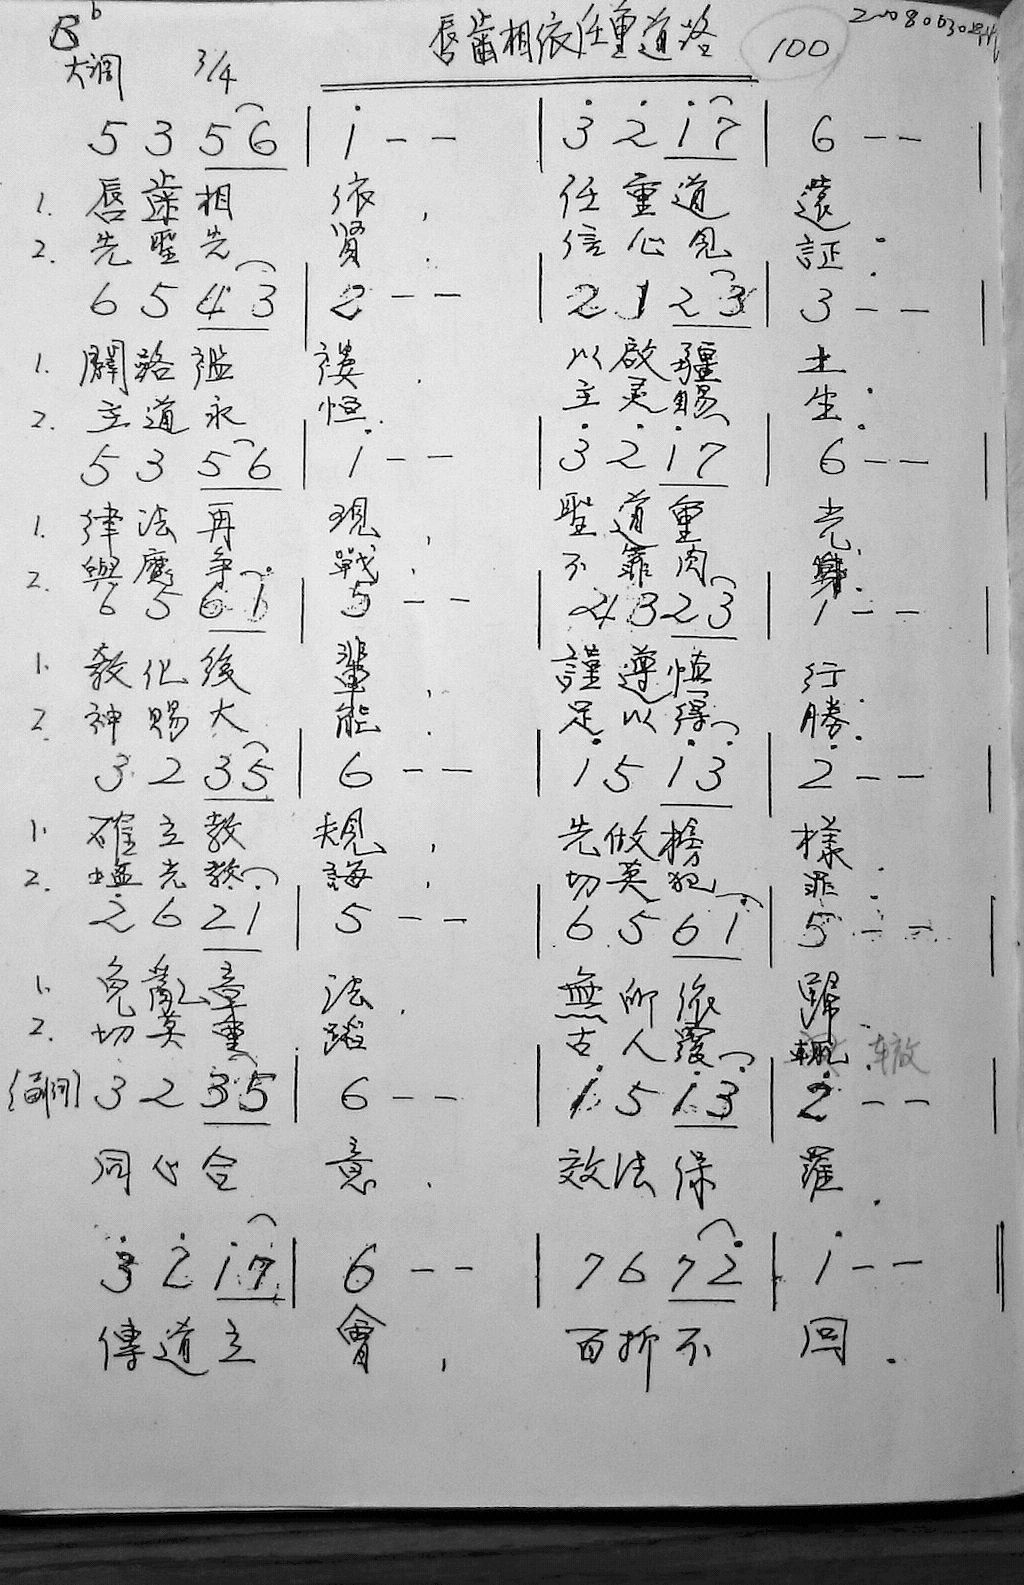 B♭ 唇齒相依任重道 100
大调 3/4
5 3 5 6 | 1 - - | 3 2 1 7 | 6 - - |
1. 唇齒相 依, 任重道 遠
2. 先聖先 賢. 信心見 証.
6 5 4 3 | 2 - - | 2 1 2 3 | 3 - - |
1. 路 褸. 以啟疆 土
2. 主道永 恒. 主灵賜 生.
5 3 5 6 | 1 - - | 3 2 1 7 | 6 - -
1. 律法再 現, 聖道重 光,
2. 與魔争 戰, 不靠肉
6 5 6 1 | 5 - - | 2 4 3 2 3 | 1 - -
1. 教化後 輩, 謹遵慎 行
2. 神賜大 能. 足以得 勝.
3 2 3 5 | 6 - - | 1 5 1 3 | 2 - - |
1. 確立教 規, 先做榜 樣
2. 光教 誨, 切莫犯 罪.
2 6 2 1 | 5 - - | 6 5 6 1 | 5 - - |
1. 免亂章 法, 無所依 歸
2. 切莫重 蹈 古人覆 辙
(副词) 3 2 3 5 | 6 - - | 1 5 1 3 | 2 - - |
同心合 意. 效法保 羅.
3 2 1 7 | 6 - - | 7 6 7 2 | 1 - - ||
傳道立 會, 百折不 回.